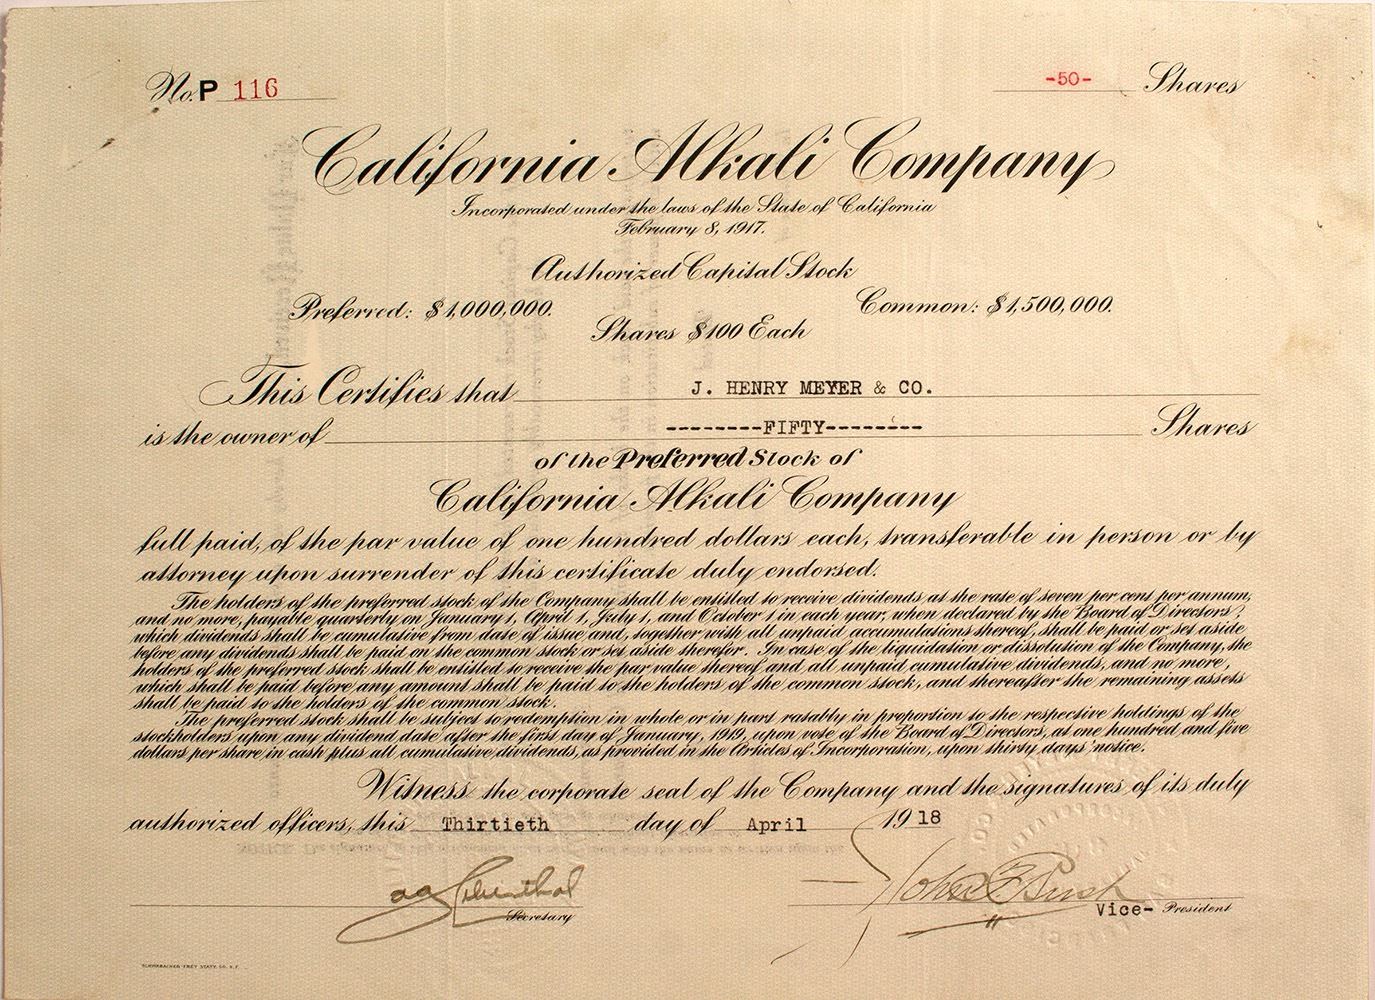 No. P 116
-50- Shares
California Alkali Company
Incorporated under the laws of the State of California
February 8, 1917.
Authorized Capital Stock
Preferred: $1,000,000. Common: $1,500,000.
Shares $100 Each
This Certifies that J. HENRY MEYER & CO.
is the owner of --------FIFTY-------- Shares
of the Preferred Stock of
California Alkali Company
full paid, of the par value of one hundred dollars each, transferable in person or by
attorney upon surrender of this certificate duly endorsed.
The holders of the preferred stock of the Company shall be entitled to receive dividends at the rate of seven per cent per annum,
and no more, payable quarterly on January 1, April 1, July 1, and October 1 in each year, when declared by the Board of Directors,
which dividends shall be cumulative from date of issue and, together with all unpaid accumulations thereof, shall be paid or set aside
before any dividends shall be paid on the common stock or set aside therefor. In case of the liquidation or dissolution of the Company, the
holders of the preferred stock shall be entitled to receive the par value thereof and all unpaid cumulative dividends, and no more,
which shall be paid before any amount shall be paid to the holders of the common stock, and thereafter the remaining assets
shall be paid to the holders of the common stock.
The preferred stock shall be subject to redemption in whole or in part ratably in proportion to the respective holdings of the
stockholders upon any dividend date after the first day of January, 1919, upon vote of the Board of Directors, at one hundred and five
dollars per share in cash plus all cumulative dividends, as provided in the Articles of Incorporation, upon thirty days' notice.
Witness the corporate seal of the Company and the signatures of its duly
authorized officers, this Thirtieth day of April 1918
Secretary
Vice- President
SCHWABACHER-FREY STATY. CO. S.F.